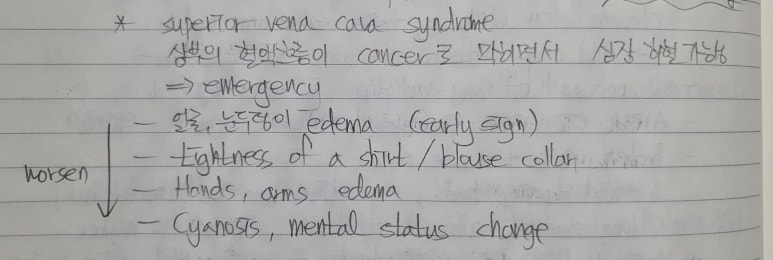 * superior vena cava syndrome
상부의 혈액흐름이 cancer로 막히면서 심장 허혈 가능
⇒ emergency
- 얼굴, 눈두덩이 edema (early sign)
- tightness of a shirt / blouse collar
worsen
- Hands, arms edema
- Cyanosis, mental status change